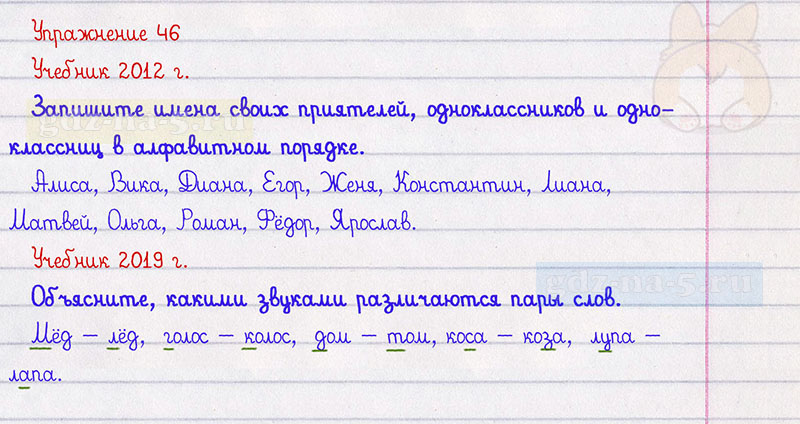 Упражнение 46
Учебник 2012 г.
Запишите имена своих приятелей, одноклассников и одно-
классниц в алфавитном порядке.
Алиса, Вика, Диана, Егор, Женя, Константин, Лиана,
Матвей, Ольга, Роман, Фёдор, Ярослав.
Учебник 2019 г.
gdz-na-5.ru
Объясните, какими звуками различаются пары слов.
Мёд – лёд, голос – колос, дом – том, коса – коза, лупа –
лапа.